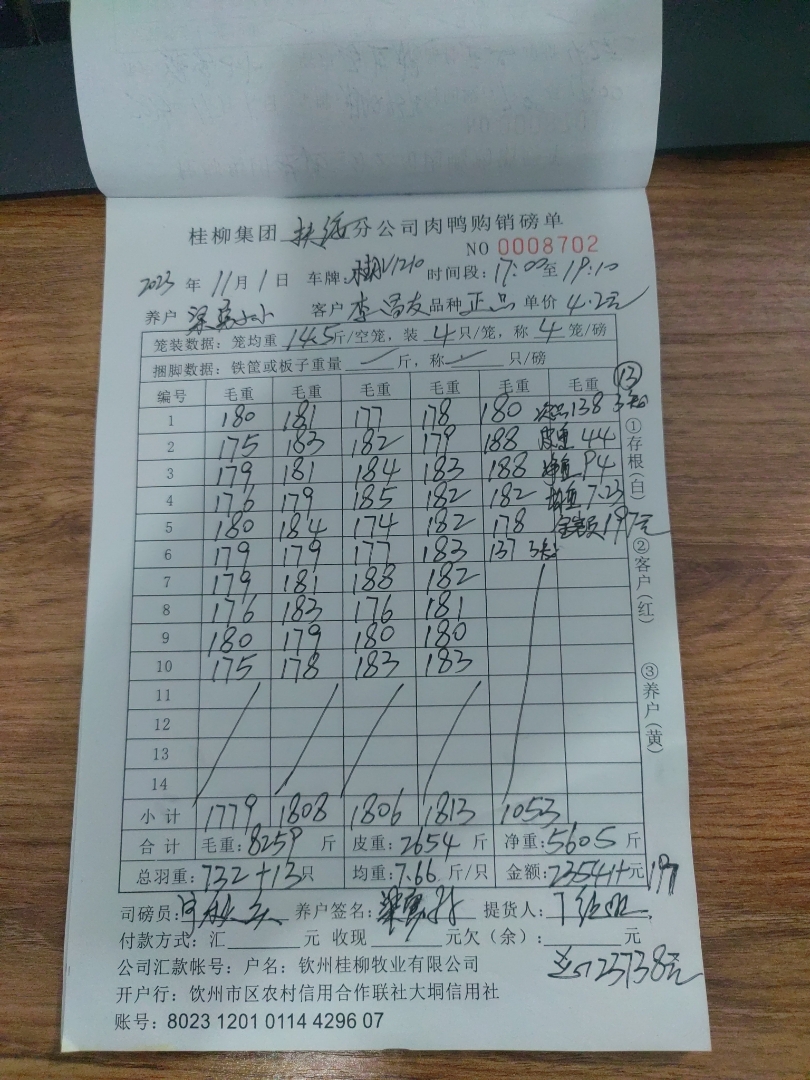 桂柳集团 扶绥 分公司肉鸭购销磅单
NO 0008702
2023 年 11 月 1 日 车牌: 1210 时间段: 17:00 至 19:10
养户 梁 客户 李昌友 品种 正品 单价 4.2元
笼装数据: 笼均重 14.5 斤/空笼, 装 4 只/笼, 称 4 笼/磅
捆脚数据: 铁筐或板子重量 斤, 称 只/磅
编号 毛重 毛重 毛重 毛重 毛重 毛重 13
1 180 181 177 178 180 138 3笼
2 175 183 182 179 188 皮重 44
3 179 181 184 183 188 净重 94
4 176 179 185 182 182 均重 7.23
5 180 184 174 182 178 金额 197元
6 179 179 177 183 137 3笼
7 179 181 188 182
8 176 183 176 181
9 180 179 180 180
10 175 178 183 183
11
12
13
14
小计 1779 1808 1806 1813 1053
合计 毛重: 8259 斤 皮重: 2654 斤 净重: 5605 斤
总羽重: 732+13 只 均重: 7.66 斤/只 金额: 23541+ 元 197
司磅员: 养户签名: 梁 提货人:
付款方式: 汇 元 收现 元欠(余): 元
公司汇款帐号: 户名: 钦州桂柳牧业有限公司
23738元
开户行: 钦州市区农村信用合作联社大垌信用社
账号: 8023 1201 0114 4296 07
①存根(白)
②客户(红)
③养户(黄)